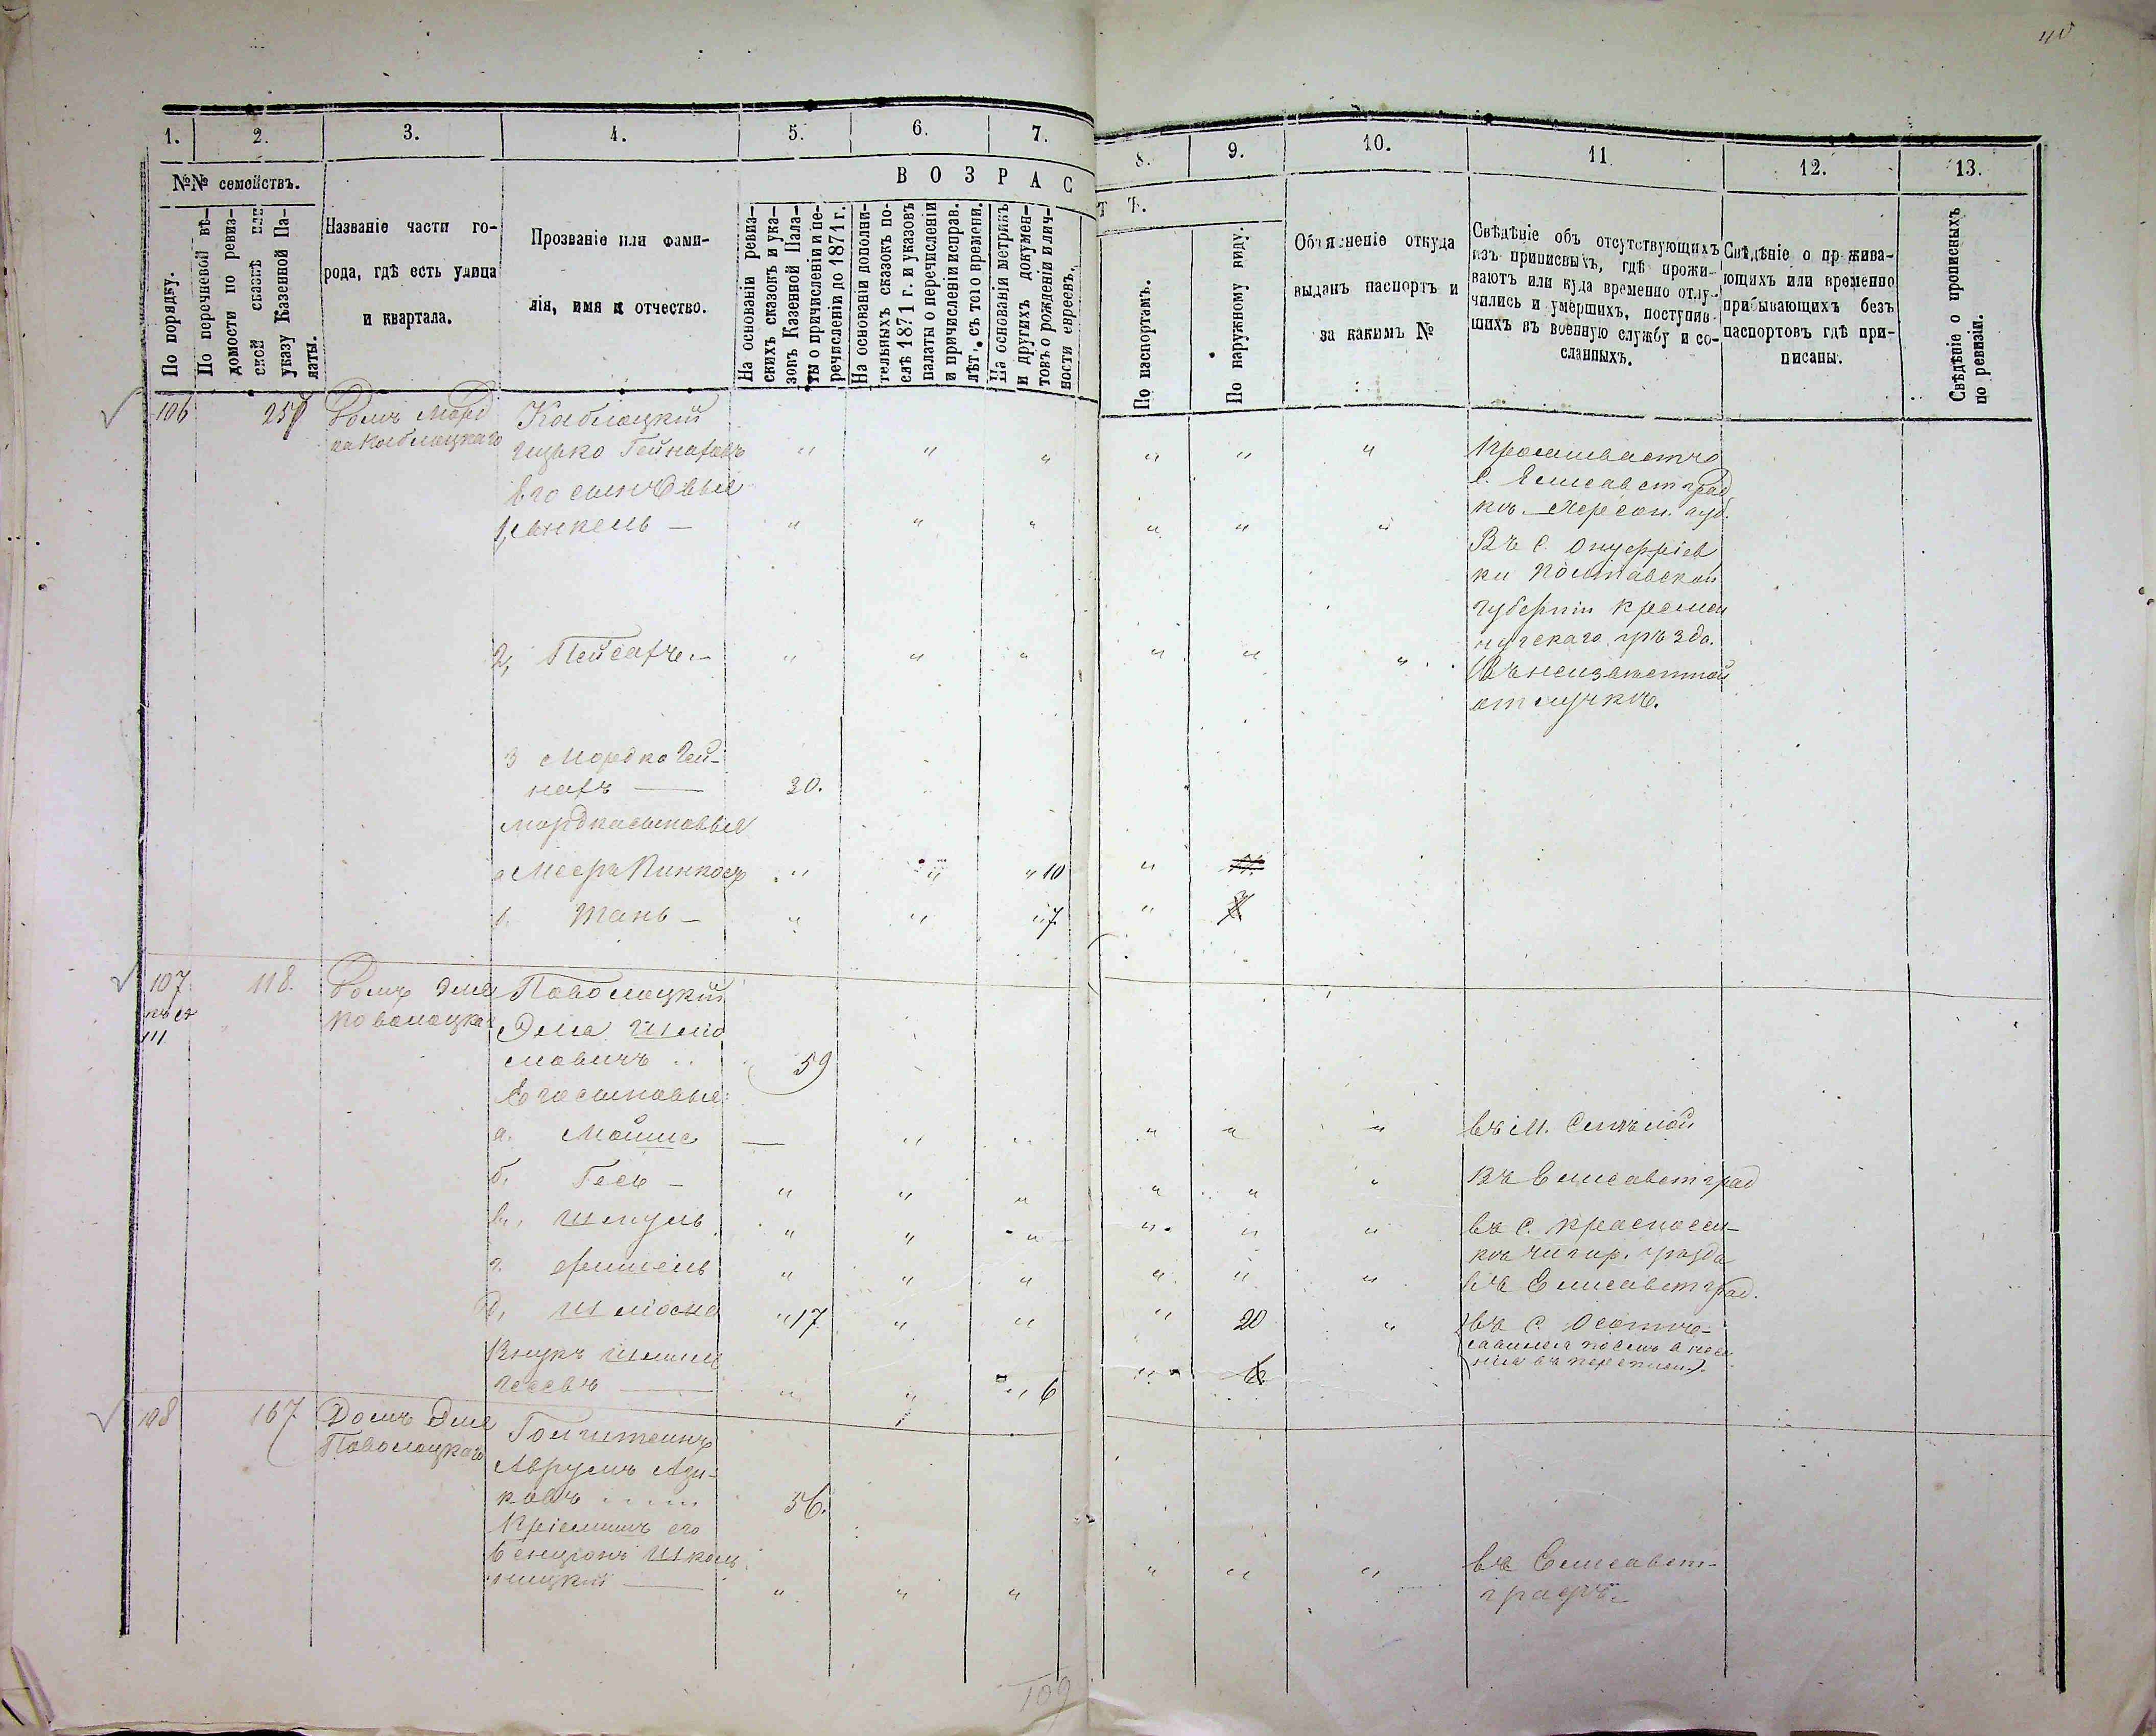 40
1. 2. 3. 4. 5. 6. 7. 8. 9. 10. 11. 12. 13.
№№ семействъ.
По порядку.
По перечневой вѣ-
домости по ревиз-
ской сказкѣ или
указу Казенной Па-
латы.
Названіе части го-
рода, гдѣ есть улица
и квартала.
Прозваніе или фами-
лія, имя и отчество.
ВОЗРАСТЪ.
На основаніи ревиз-
скихъ сказокъ и ука-
зовъ Казенной Пала-
ты о причисленіи и пе-
речисленіи до 1871 г.
На основаніи дополни-
тельныхъ сказокъ по-
слѣ 1871 г. и указовъ
палаты о перечисленіи
и причисленіи исправ.
лѣт. съ того времени.
На основаніи метрикъ
и другихъ докумен-
товъ о рожденіи и лич-
ности евреевъ.
По паспортамъ.
По наружному виду.
Объясненіе откуда
выданъ паспортъ и
за какимъ №
Свѣдѣніе объ отсутствующихъ
изъ приписныхъ, гдѣ прожи-
ваютъ или куда временно отлу-
чились и умершихъ, поступив-
шихъ въ военную службу и со-
сланныхъ.
Свѣдѣніе о прожива-
ющихъ или временно
прибывающихъ безъ
паспортовъ гдѣ при-
писаны.
Свѣдѣніе о прописныхъ
по ревизіи.
106 Домъ Морд
ка Каблоцкаго
Каблоцкій
Ицько Гейнаховъ " " " " " "
Его сыновья
1, Янкель — " " " " " "
С. Елисаветград
кѣ. Херсон. губ.
Въ С. Онуфріев
ки Полтавской
губерніи Кремен
чугскаго уѣзда.
2, Пейсахъ. — " " " " " "
Въ неизвѣстной
отлучкѣ.
3 Мордко Гей-
нахъ — 30.
Мордка сыновья
а Меера Пинкосъ " " " 10 "
" " " 7 "
107 118. Домъ Эли
Поволоцка
Поволоцкій
Эля Шлио
мовичъ .. 59
Его сыновья:
а. Мойше — " " " " "
въ М. Смѣлой
б. Гесь — " " " " " "
Въ Елисаветград
в. Шмуль " " " " " "
въ С. Красносел-
кѣ Чигир. уѣзда
г. Фишель " " " " " "
въ Елисаветград.
д, " 17 " " " 20 "
въ С. Осотнѣ-
Внукъ
Гесевъ — " " " 6 "
108 167 Домъ Эли
Поволоцкаго
Голдштейнъ
Аврумъ
56.
Пріемышъ его
Бенціонъ Школь
ницкій — " " " " " "
въ Елисавет-
градѣ.
109